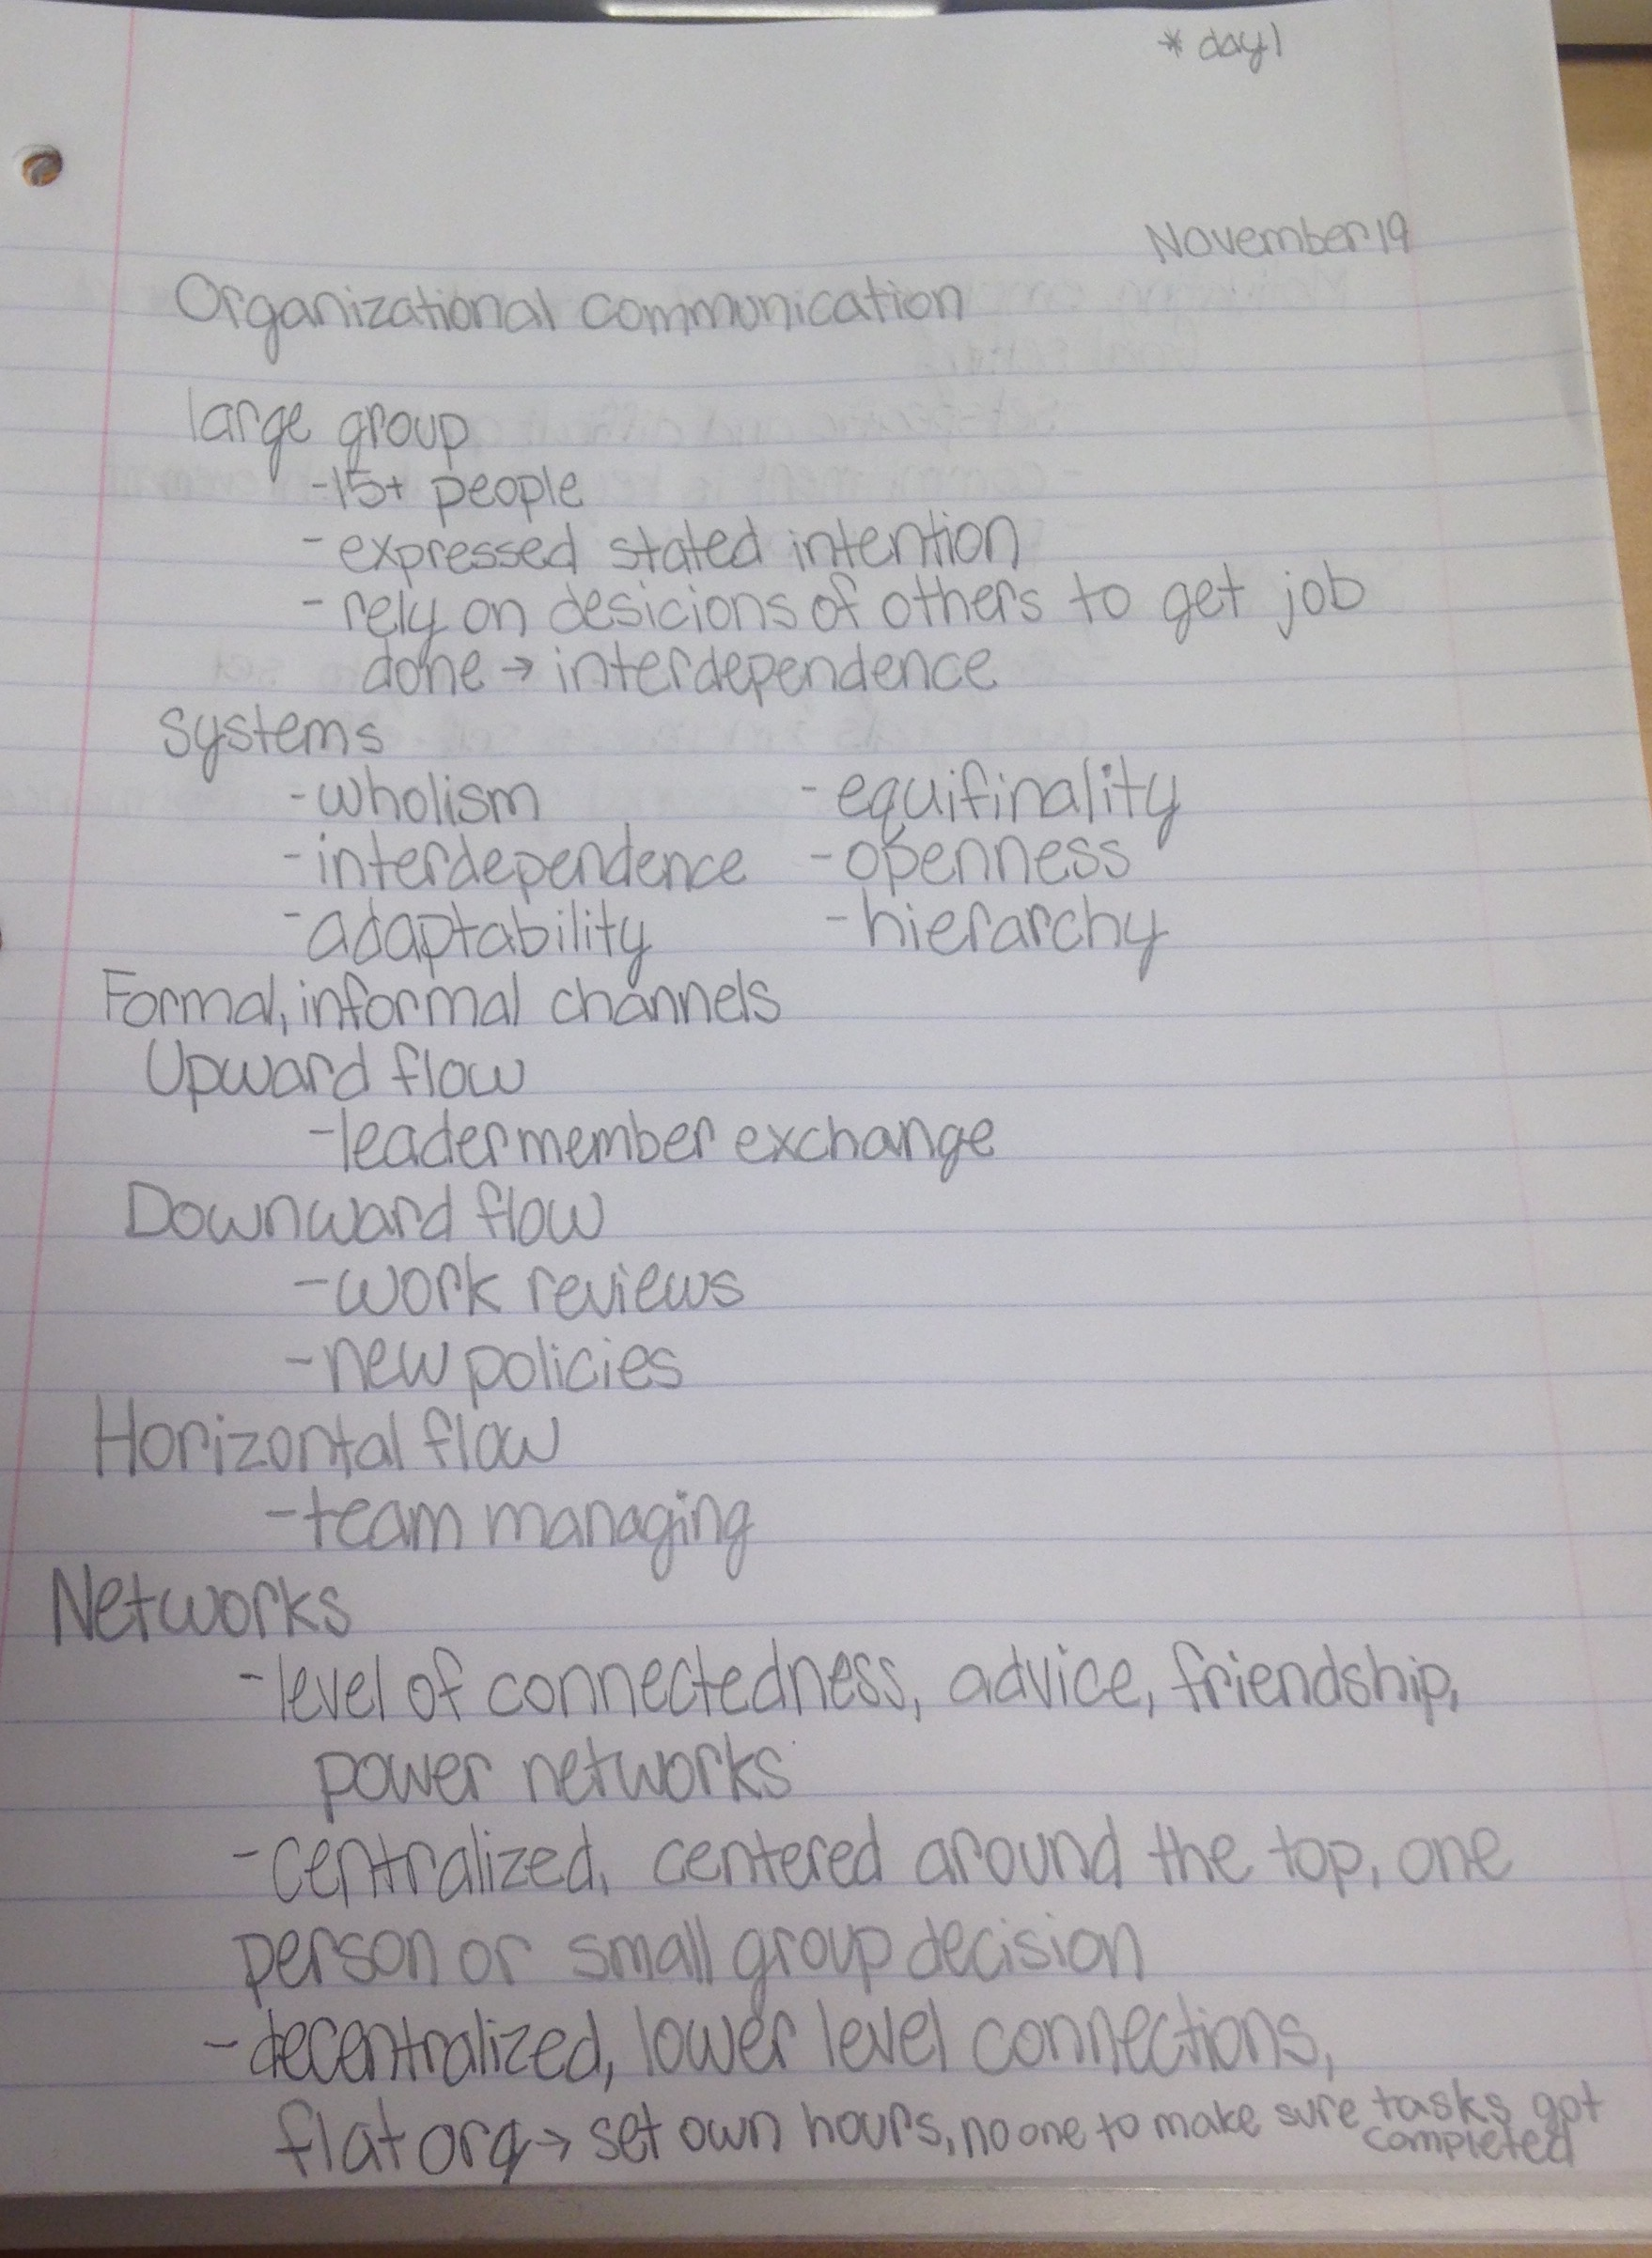 * day 1
November 19
Organizational communication
large group
-15+ people
- expressed stated intention
- rely on desicions of others to get job
done → interdependence
Systems
-wholism -equifinality
-interdependence -openness
-adaptability -hierarchy
Formal, informal channels
Upward flow
-leader member exchange
Downward flow
-work reviews
-new policies
Horizontal flow
-team managing
Networks
-level of connectedness, advice, friendship,
power networks
-centralized, centered around the top, one
person or small group decision
-decentralized, lower level connections,
flat org → set own hours, no one to make sure tasks got
completed